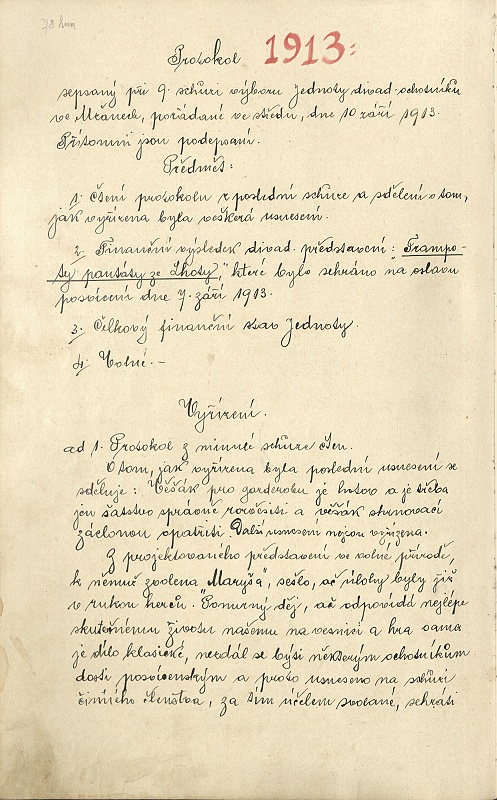 Protokol 1913:
sepsaný při 9. schůzi výboru Jednoty divad. ochotníků
ve Mžanech, pořádané ve středu, dne 10 září 1913.
Přítomni jsou podepsaní.
Předmět:
1. Čtení protokolu z poslední schůze a sdělení o tom,
jak vyřízena byla veškerá usnesení.
2. Finanční výsledek divad. představení: „Trampo-
ty pantáty ze Lhoty," které bylo sehráno na oslavu
posvícení dne 7. září 1913.
3. Celkový finanční stav Jednoty.
4. Volné. -
Vyřízení.
ad 1. Protokol z minulé schůze čten.
O tom, jak vyřízena byla poslední usnesení se
sděluje: Věšák pro garderobu je hotov a je třeba
jen šatstvo správně rozvěsiti a věšák shrnovací
záclonou opatřiti. Další usnesení nejsou vyřízena.
Z projektovaného představení ve volné přírodě,
k němuž zvolena „Maryša", sešlo, ač úlohy byly již
v rukou herců. Ponurný děj, ač odpovídá nejlépe
skutečnému životu našemu na vesnici a hra sama
je dílo klasické, nezdál se býti některým ochotníkům
dosti posvícenským a proto usneseno na schůzi
činného členstva, za tím účelem svolané, sehráti